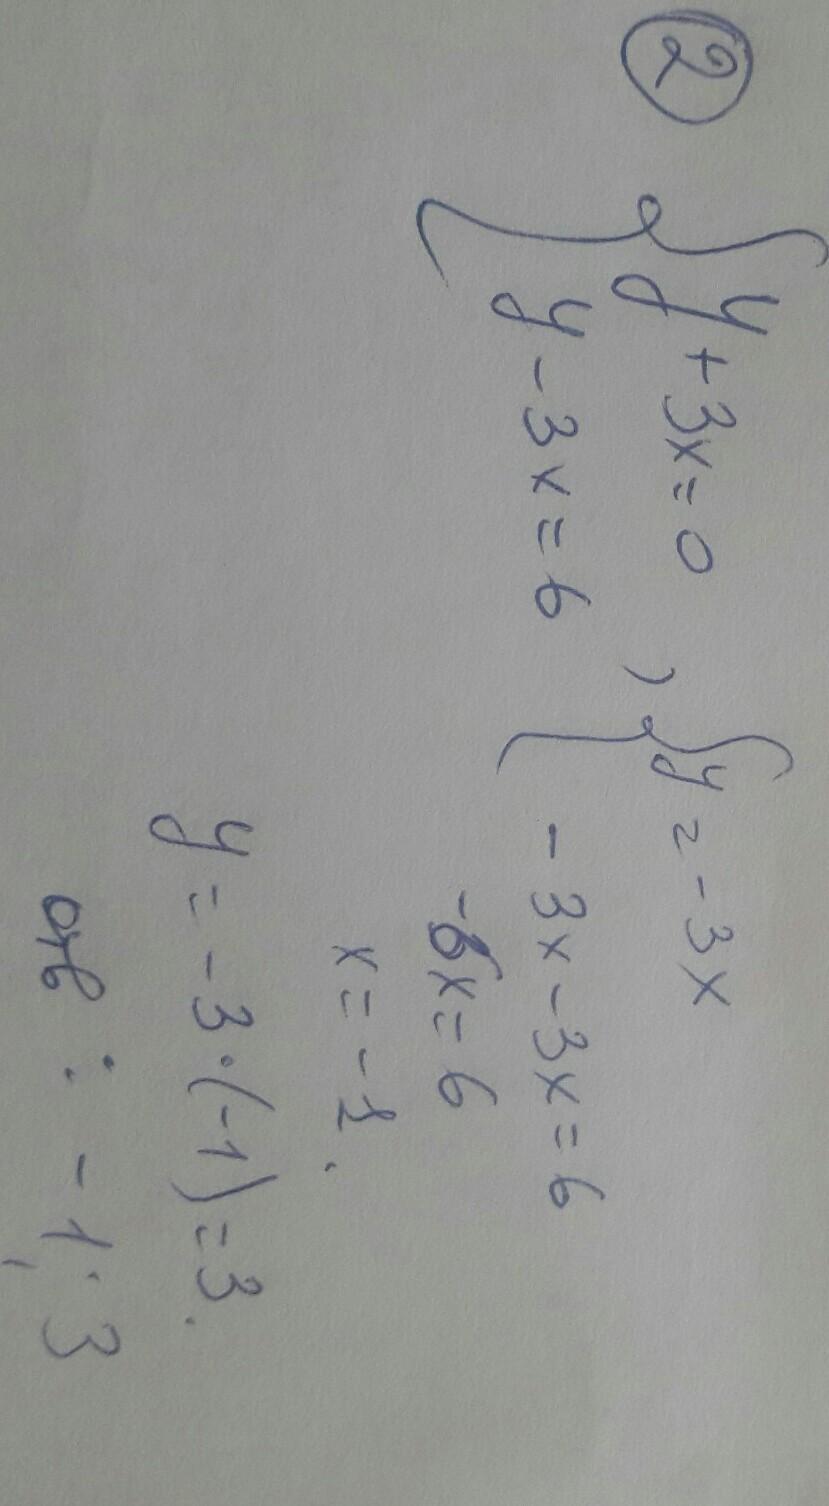 2
y + 3x = 0
y - 3x = 6
, y = -3x
-3x - 3x = 6
-6x = 6
x = -1.
y = -3·(-1) = 3.
отв: -1; 3